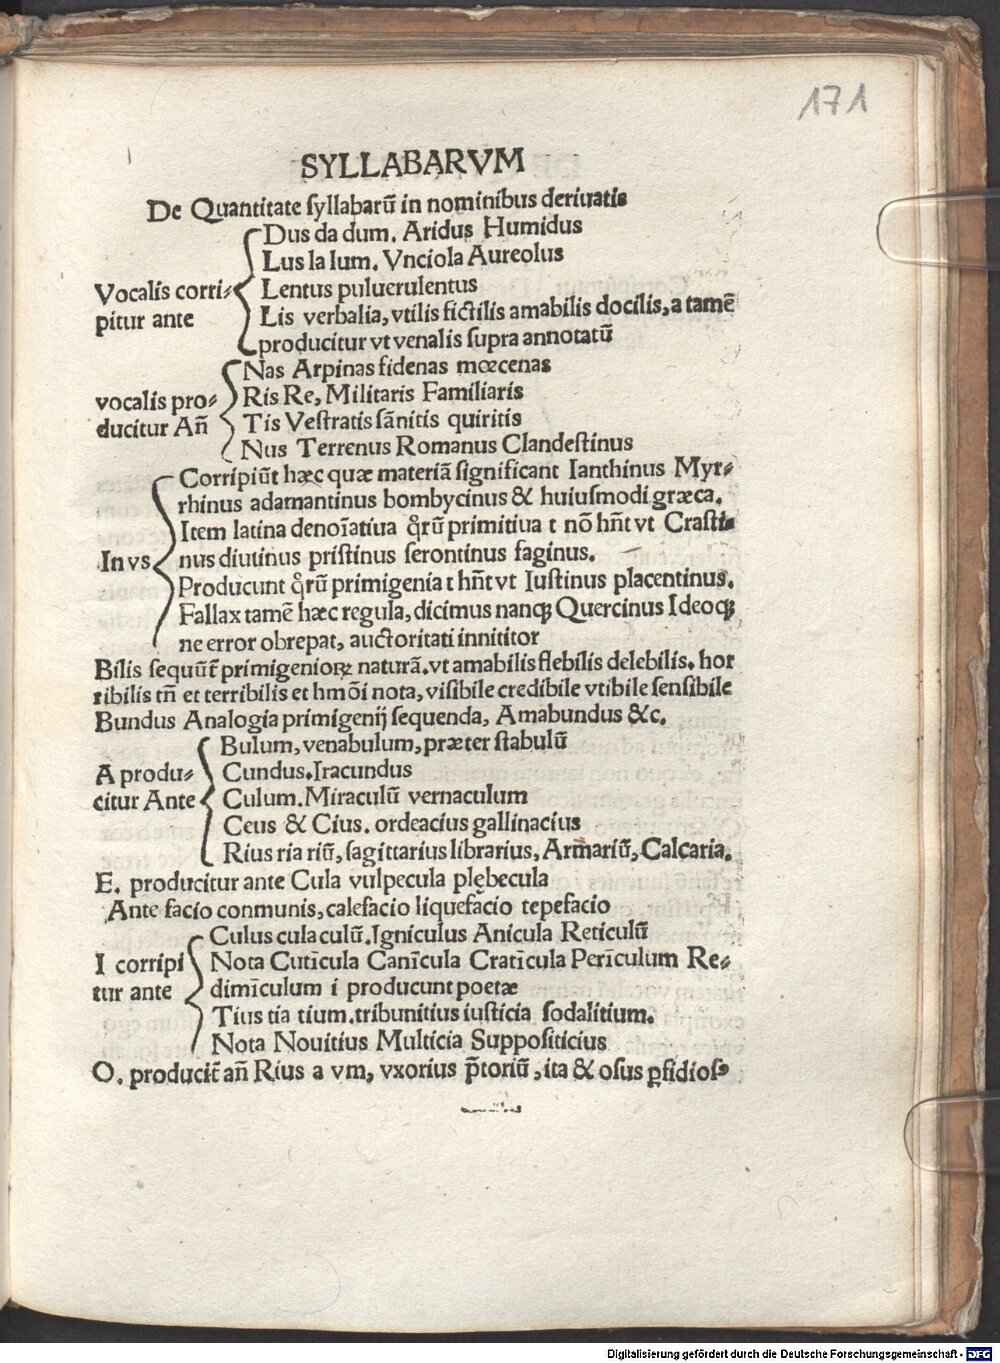 171
SYLLABARVM
De Quantitate ſyllabarū in nominibus deriuatis
Dus da dum. Aridus Humidus
Lus la lum. Vnciola Aureolus
Vocalis corri-
pitur ante
Lentus puluerulentus
Lis verbalia, vtilis fictilis amabilis docilis, a tamē
producitur vt venalis ſupra annotatū
vocalis pro-
ducitur An̄
Nas Arpinas fidenas mœcenas
Ris Re, Militaris Familiaris
Tis Veſtratis ſānitis quiritis
Nus Terrenus Romanus Clandeſtinus
In vs
Corripiūt hæc quæ materiā ſignificant Ianthinus Myr-
rhinus adamantinus bombycinus & huiuſmodi græca.
Item latina denoīatiua q̄rū primitiua t nō hn̄t vt Craſti-
nus diutinus priſtinus ſerontinus faginus.
Producunt q̄rū primigenia t hn̄t vt Iuſtinus placentinus.
Fallax tamē hæc regula, dicimus nanqꝫ Quercinus Ideoqꝫ
ne error obrepat, auctoritati innititor
Bilis ſequūt̄ primigenioꝝ naturā. vt amabilis flebilis delebilis. hor
ribilis tn̄ et terribilis et hmōi nota, viſibile credibile vtibile ſenſibile
Bundus Analogia primigenij ſequenda, Amabundus &c.
A produ-
citur Ante
Bulum, venabulum, præter ſtabulū
Cundus. Iracundus
Culum. Miraculū vernaculum
Ceus & Cius. ordeacius gallinacius
Rius ria riū, ſagittarius librarius, Armariū, Calcaria.
E. producitur ante Cula vulpecula plębecula
Ante facio conmunis, calefacio liquefacio tepefacio
I corripi
tur ante
Culus cula culū. Igniculus Anicula Reticulū
Nota Cutīcula Canīcula Cratīcula Perīculum Re-
dimīculum i producunt poetæ
Tius tia tium. tribunitius iuſticia ſodalitium.
Nota Nouitius Multicia Suppoſiticius
O. producit̄ an̄ Rius a vm, vxorius p̄toriū, ita & oſus ꝑfidioſꝰ
Digitalisierung gefördert durch die Deutsche Forschungsgemeinschaft - DFG